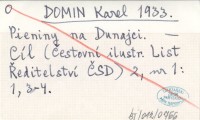 DOMIN Karel 1933.
Pieniny na Dunajci. —
Cíl (Čestovní ilustr. List
Ředitelství ČSD) 2, nr 1:
1, 3-4.